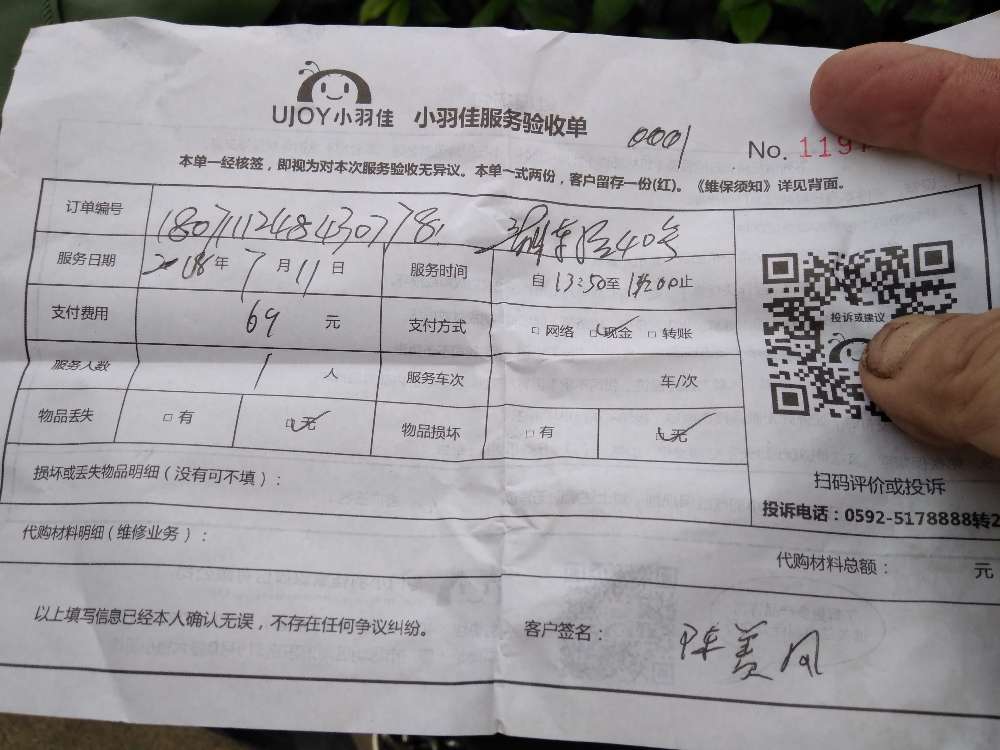 UJOY小羽佳 小羽佳服务验收单 0001 No. 1197
本单一经核签，即视为对本次服务验收无异议。本单一式两份，客户留存一份(红)。《维保须知》详见背面。
订单编号 40号
服务日期 2018年7月11日 服务时间 自13:50至 止
支付费用 69 元 支付方式 □ 网络 □ 现金 □ 转账
服务人数 1 人 服务车次 车/次
物品丢失 □ 有 □ 无 物品损坏 □ 有 □ 无
投诉或建议
扫码评价或投诉
投诉电话：0592-5178888转2
损坏或丢失物品明细（没有可不填）：
代购材料明细（维修业务）：
代购材料总额： 元
以上填写信息已经本人确认无误，不存在任何争议纠纷。 客户签名： 陈美凤